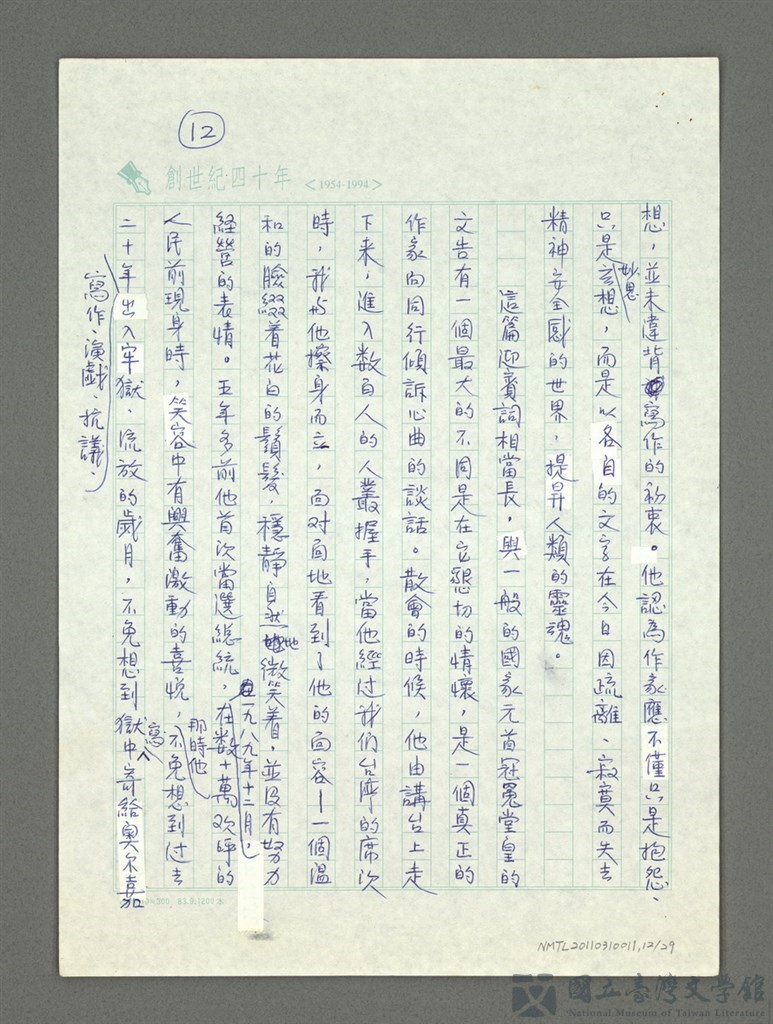 12
創世紀·四十年 <1954·1994>
想，並未違背寫作的初衷。他認為作家應不僅只是抱怨、
只是妙思玄想，而是以各自的文字在今日因疏離、寂寞而失去
精神安全感的世界，提昇人類的靈魂。
這篇迎賓詞相當長，與一般的國家元首冠冕堂皇的
文告有一個最大的不同是在它懇切的情懷，是一個真正的
作家向同行傾訴心曲的談話。散會的時候，他由講台上走
下来，進入数百人的人叢握手，當他經过我們台灣的席次
時，我与他擦身而立，面对面地看到了他的面容—一個溫
和的臉綴着花白的鬚髮，穩静自然地微笑着，並没有努力
経營的表情。五年多前他首次當選總統，
一九八九年十二月，
在数十萬欢呼的
人民前現身時，笑容中有興奮激動的喜悦，
那時他
不免想到过去
二十年出入牢獄、流放的歲月，不免想到獄中寫寄給奥尔嘉
寫作、演戲、抗議、
300 83.9.1000本
NMTL20110310011,12/29
國立臺灣文學館
National Museum of Taiwan Literature